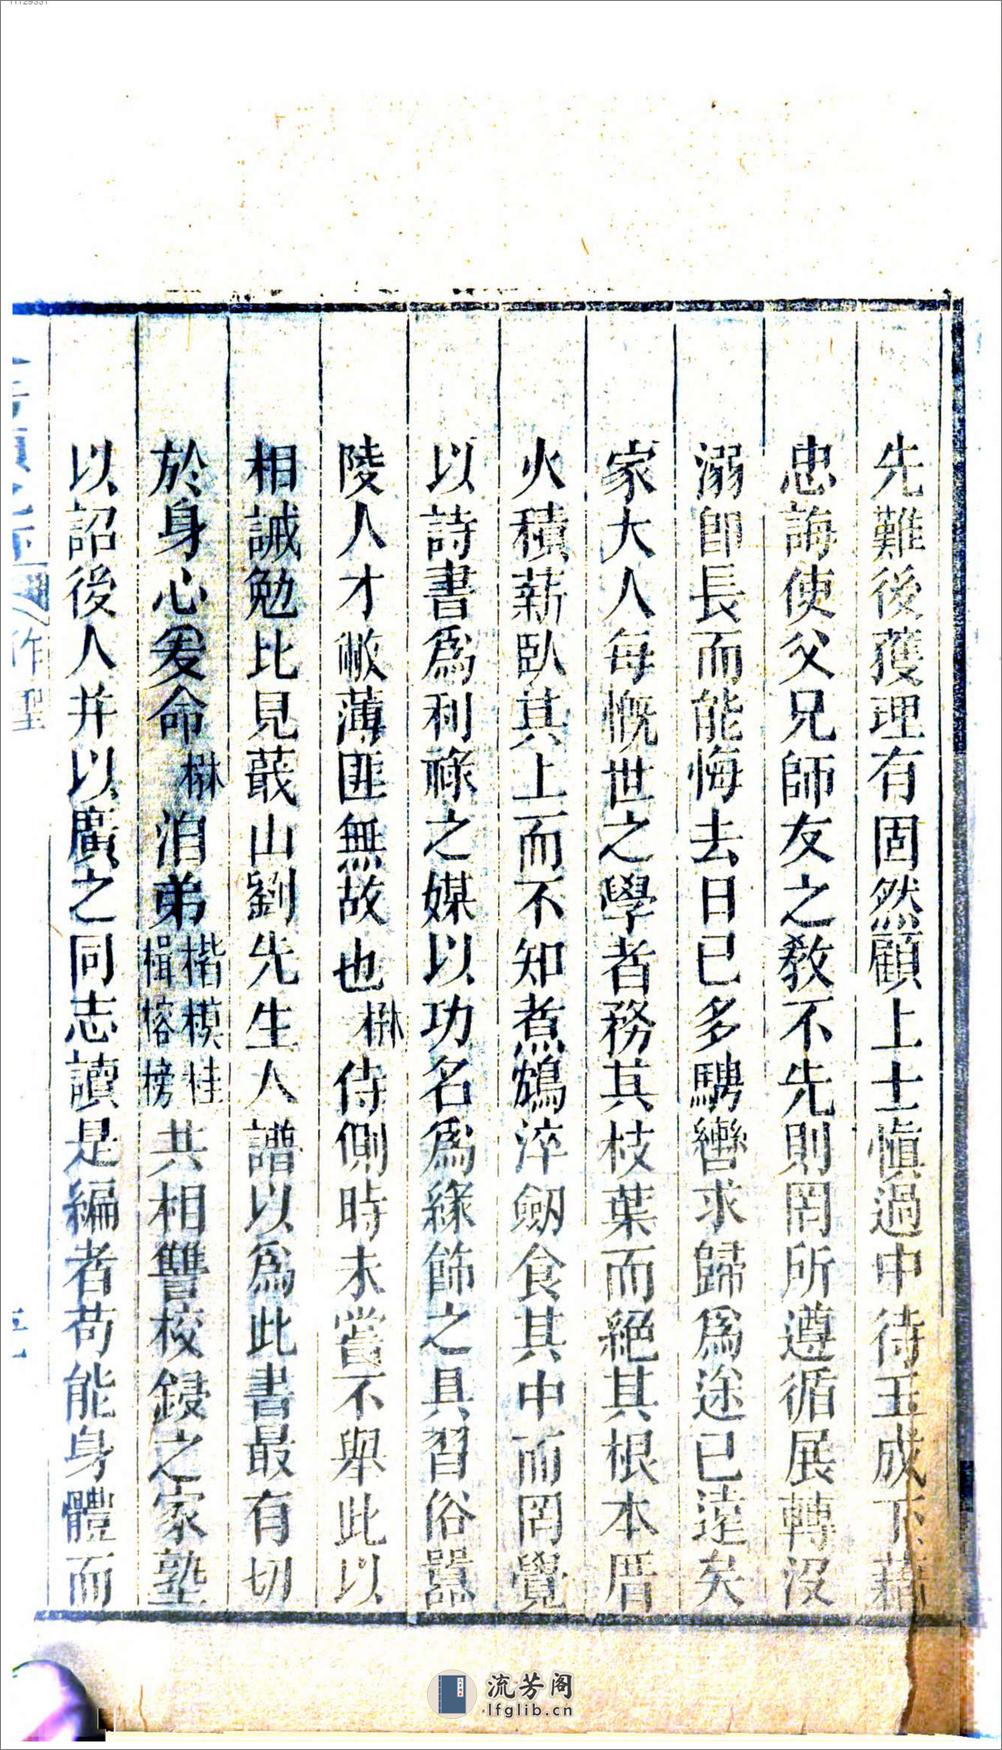 先難後獲理有固然顧上士愼過中待玉成下藉
忠誨使父兄師友之敎不先則罔所遵循展轉沒
溺卽長而能悔去日已多騁轡求歸爲途已遠矣
家大人每慨世之學者務其枝葉而絕其根本厝
火積薪臥其上而不知煮鴆淬劒食其中而罔覺
以詩書爲利祿之媒以功名爲緣飾之具習俗囂
陵人才敝薄匪無故也楙侍側時未嘗不舉此以
相誡勉比見蕺山劉先生人譜以爲此書最有切
於身心爰命楙洎弟楷模桂楫榕榜共相讐校鋟之家塾
以詔後人并以廣之同志讀是編者苟能身體而
作聖
流芳阁
lfglib.cn